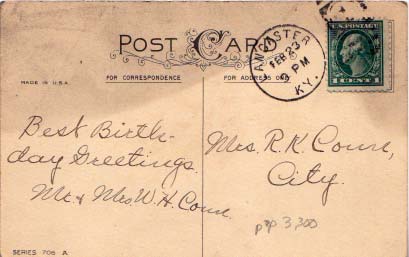 POST CARD
FOR CORRESPONDENCE
FOR ADDRESS ONLY
MADE IN U.S.A.
LANCASTER
FEB 23
PM
KY.
U.S. POSTAGE
1 CENT 1
Best Birth-
day Greetings.
Mr. & Mrs. W. H. Conn.
Mrs. R. K. Conn,
City.
3,300
SERIES 706 A